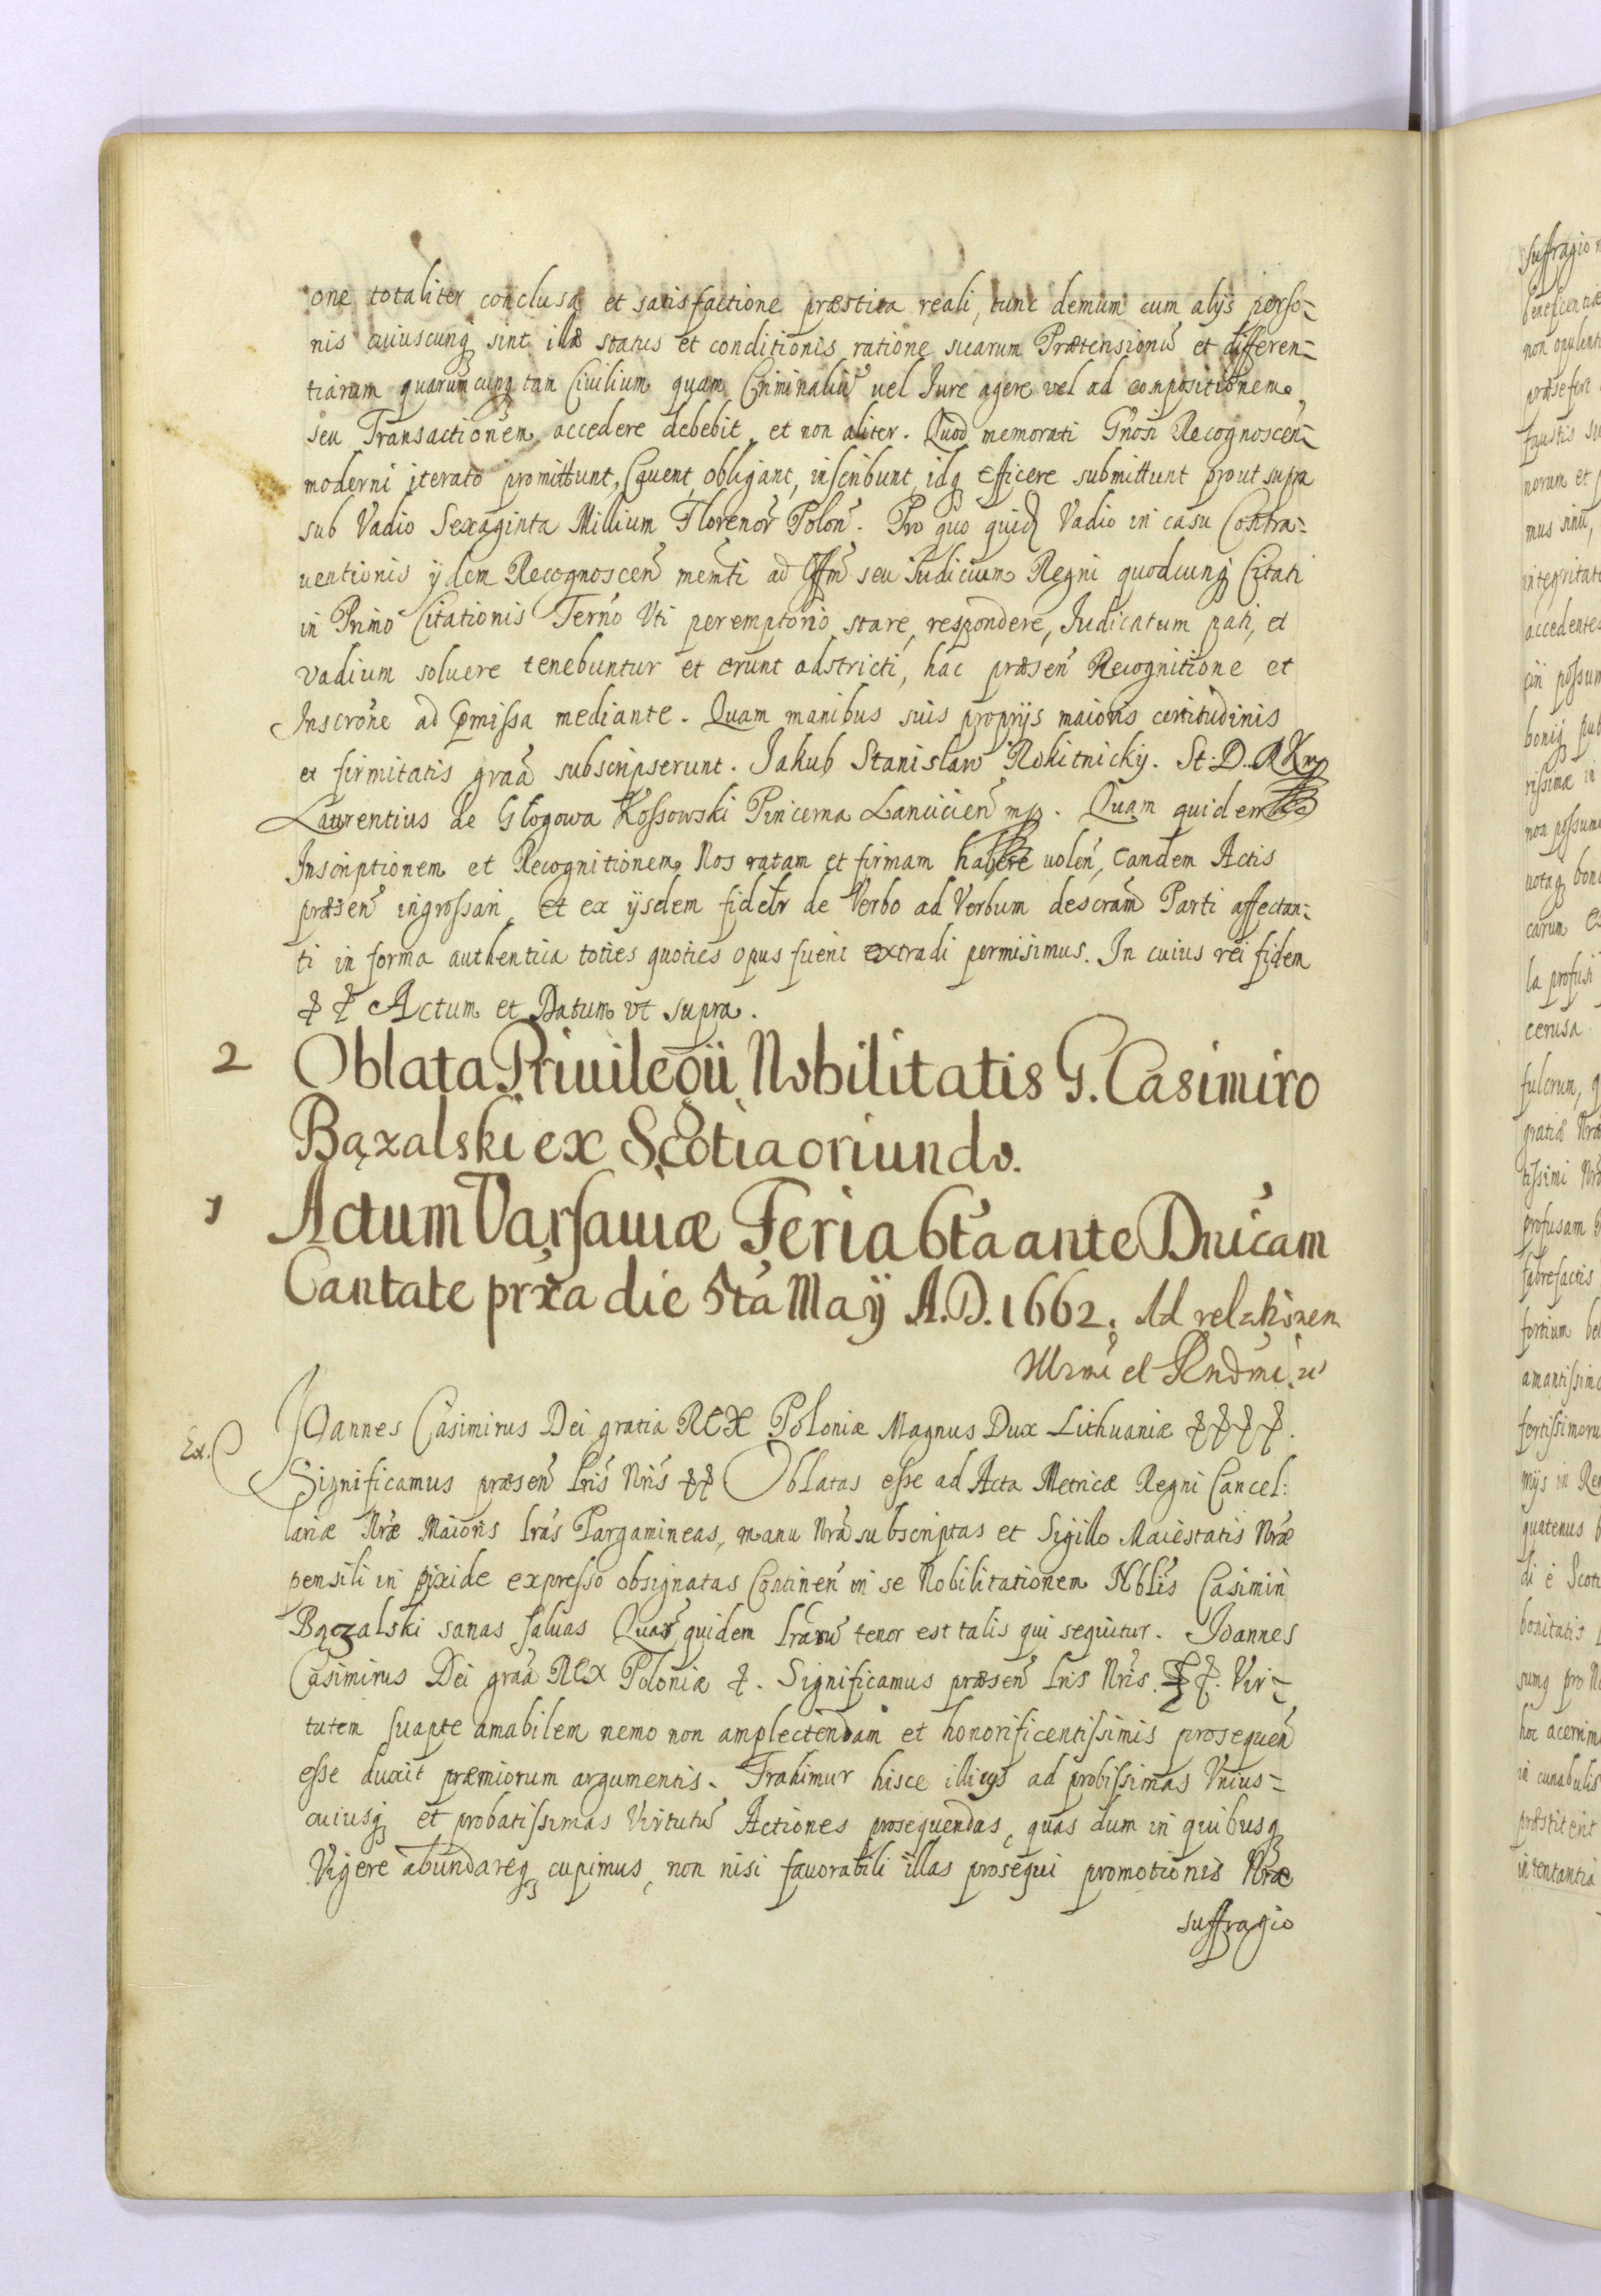 one totaliter conclusa et satisfactione præstita reali, tunc demum cum alijs perso=
nis cuiuscunq sint illæ status et conditionis ratione suarum Prætensionũ et differen=
tiarum quarumcunq tam Ciuilium quam Criminaliũ vel Iure agere vel ad compositionem
seu Transactionem accedere debebit, et non aliter. Quod memorati Gñosi Recognoscen=
moderni iterato promittunt, Cauent, obligant, inscribunt, idq efficere submittunt prout supra
sub Vadio Sexaginta Millium Florenor Poloñ. Pro quo quid Vadio in casu Contra=
uentionis ijdem Recognosceñ memti ad Offm seu Iudicium Regni quodcunq Citati
in Primo Citationis Terño Vti peremptorio stare, respondere, Iudicatum pati, et
vadium soluere tenebuntur et erunt adstricti, hac præseñ Recognitione et
Inscrone ad præmissa mediante. Quam manibus suis proprijs maioris certitudinis
et firmitatis graã subscripserunt. Jakub Stanislaw Rokitnickij. St. D.
Laurentius de Głogowa Kossowski Pincerna Lanicieñ mp. Quam quidem
Inscriptionem et Recognitionem Nos ratam et firmam habere uoleñ, eandem Actis
præseñ ingrossari, et ex ijsdem fidelr de Verbo ad Verbum descram Parti affectan=
ti in forma authentica toties quoties opus fuerit extradi permisimus. In cuius rei fidem
Actum et Datum vt supra.
2 Oblata Priuilegii Nobilitatis G. Casimiro
Bązalski ex Scotia oriundo.
1 Actum Varsauiæ Feria 6ta ante Dnicam
Cantate prxa die 5ta Maij A.D. 1662. Ad relationem
Illrmi et Rndmi
Ex. Ioannes Casimirus Dei gratia REX Poloniæ Magnus Dux Lithuaniæ
Significamus præseñ lris Nris Oblatas esse ad Acta Metricæ Regni Cancel:
lariæ Nræ Maioris lras Pargamineas, manu Nra subscriptas et Sigillo Maiestatis Nræ
pensili in pixide expresso obsignatas Contineñ in se Nobilitationem Nblis Casimiri
Bączalski sanas saluas Quar quidem lrarũ tenor est talis qui sequitur. Joannes
Casimirus Dei graã REX Poloniæ. Significamus præseñ lris Nris. Vir=
tutem suapte amabilem nemo non amplectendam et honorificentissimis prosequeñ
esse duxit præmiorum argumentis. Trahimur hisce illicijs ad probissimas Vnius=
cuiusq et probatissimas Virtutũ Actiones prosequendas, quas dum in quibusq
Vigere abundareq cupimus, non nisi fauorabili illas prosequi promotionis Nræ
suffragio